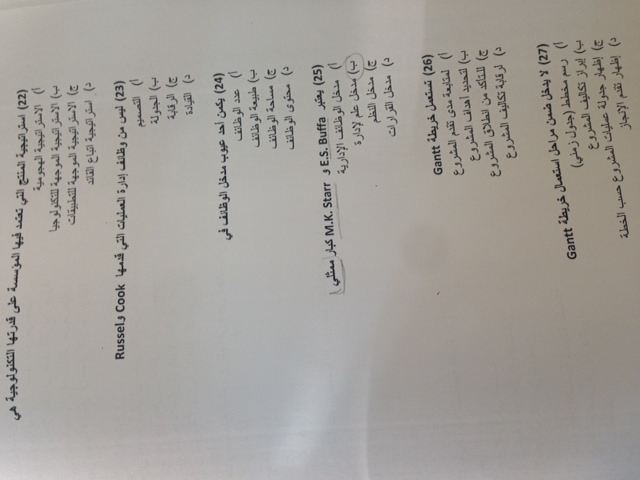 22) استراتيجية المنتج التي تعتمد فيها المؤسسة على قدرتها التكنولوجية هي
أ) الاستراتيجية الهجومية
ب) الاستراتيجية الموجهة للتكنولوجيا
ج) الاستراتيجية الموجهة للتطبيقات
د) استراتيجية اتباع القائد
23) ليس من وظائف إدارة العمليات التي قدمها Cook و Russel
أ) التصميم
ب) الجدولة
ج) الرقابة
د) القيادة
24) يكمن احد عيوب مدخل الوظائف في
أ) عدد الوظائف
ب) طبيعة الوظائف
ج) مصلحة الوظائف
د) محتوى الوظائف
25) يعتبر E.S. Buffa و M.K. Starr كبار ممثلي
أ) مدخل الوظائف الإدارية
ب) مدخل علم الإدارة
ج) مدخل النظم
د) مدخل القرارات
26) تستعمل خريطة Gantt
أ) لمتابعة مدى تقدم المشروع
ب) لتحديد أهداف المشروع
ج) للتأكد من انطلاق المشروع
د) لرقابة تكاليف المشروع
27) لا يدخل ضمن مراحل استعمال خريطة Gantt
أ) رسم مخطط (جدول زمني)
ب) إبراز تكاليف المشروع
ج) إظهار جدولة عمليات المشروع حسب الخطة
د) إظهار تقدم الإنجاز